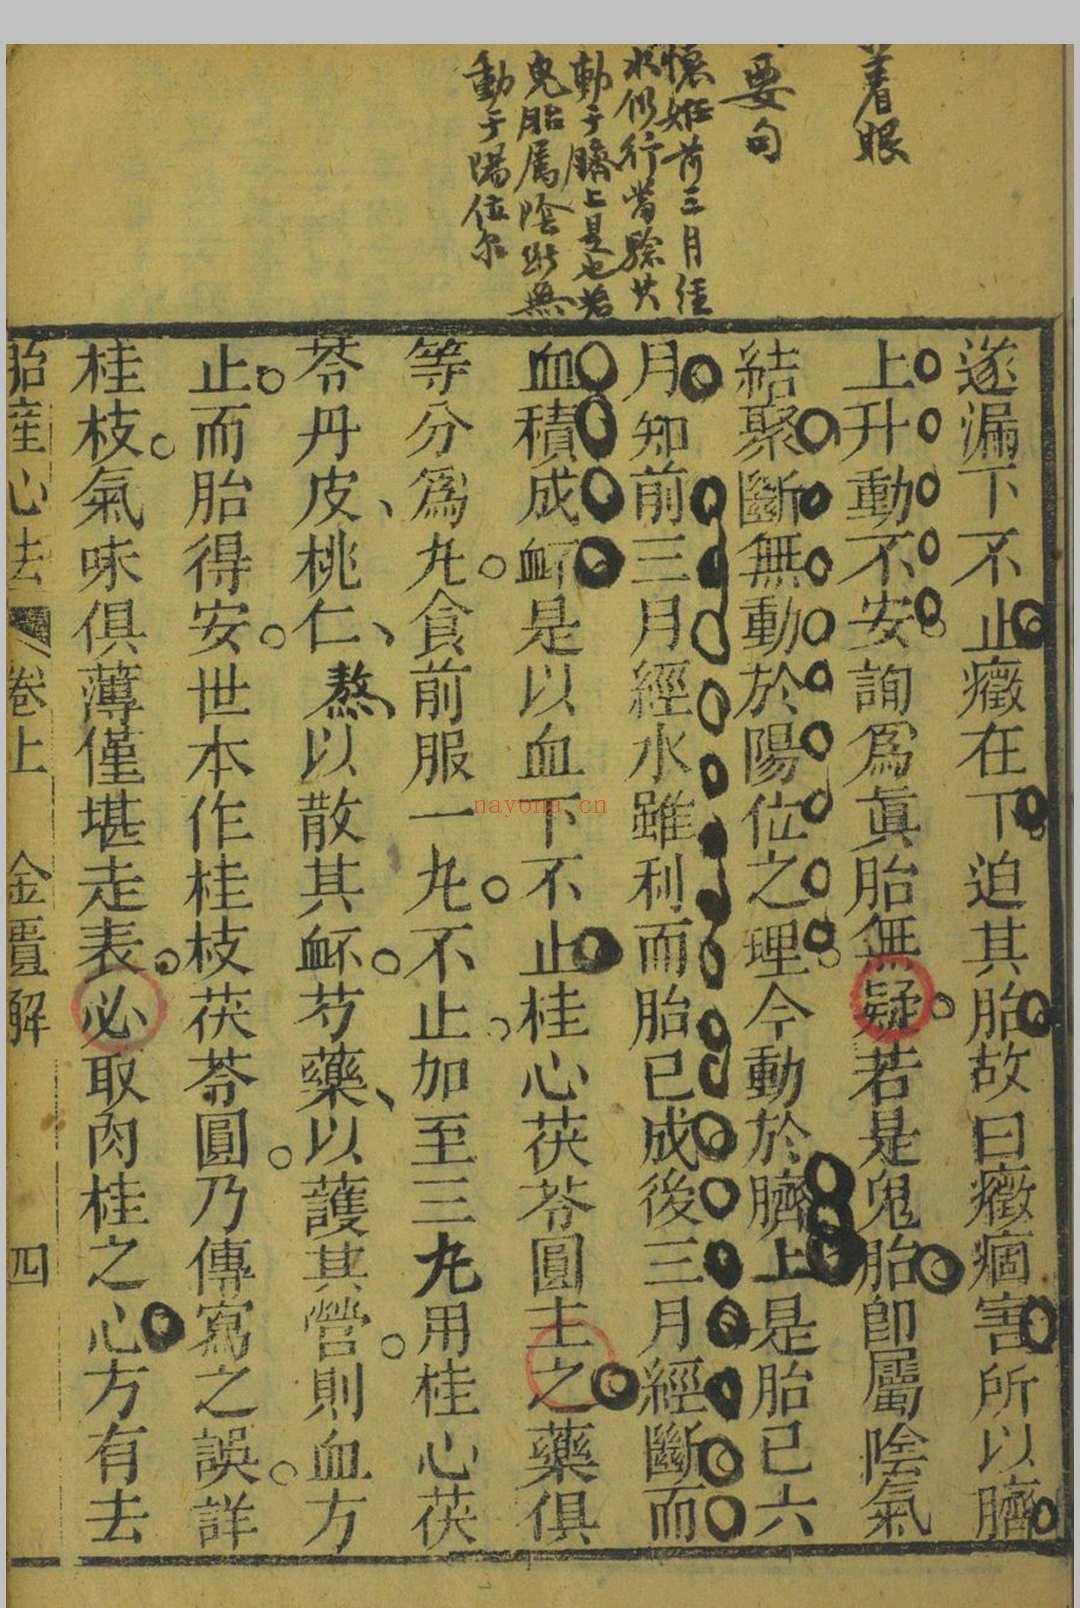 着眼
要句
懷妊前三月經
水仍行當驗其
動于臍上是也若
鬼胎屬陰斷無
動于陽位尔
遂漏下不止癥在下迫其胎故曰癥痼害所以臍
上升動不安詢爲眞胎無疑若是鬼胎卽屬陰氣
結聚斷無動於陽位之理今動於臍上是胎已六
月知前三月經水雖利而胎已成後三月經斷而
血積成衃是以血下不止桂心茯苓圓主之藥俱
等分爲丸食前服一丸不止加至三丸用桂心茯
苓丹皮桃仁熬以散其衃芍藥以護其營則血方
止而胎得安世本作桂枝茯苓圓乃傳寫之誤詳
桂枝氣味俱薄僅堪走表必取肉桂之心方有去
胎産心法 卷上 金匱解 四
nayona.cn